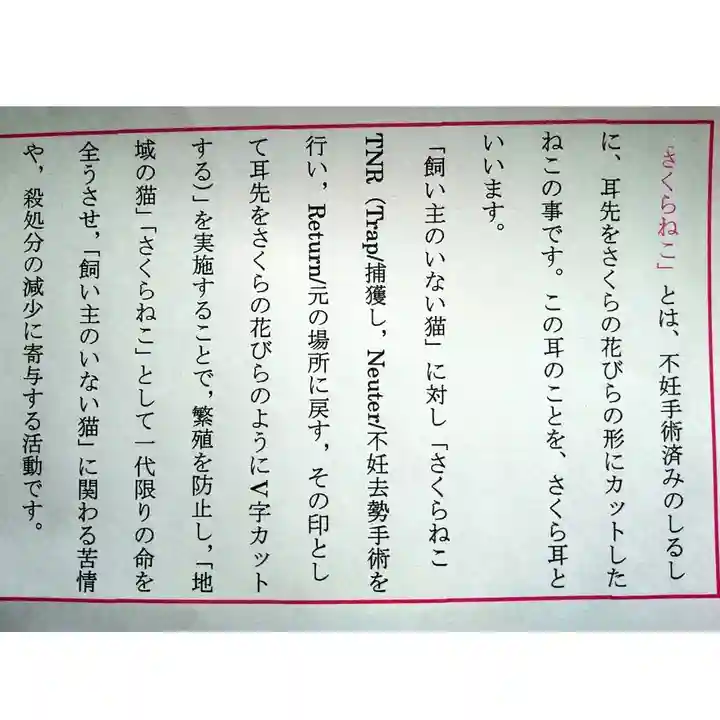 「さくらねこ」とは、不妊手術済みのしるし
に、耳先をさくらの花びらの形にカットした
ねこの事です。この耳のことを、さくら耳と
いいます。
「飼い主のいない猫」に対し「さくらねこ
TNR（Trap/捕獲し，Neuter/不妊去勢手術を
行い，Return/元の場所に戻す，その印とし
て耳先をさくらの花びらのようにV字カット
する）」を実施することで，繁殖を防止し，「地
域の猫」「さくらねこ」として一代限りの命を
全うさせ，「飼い主のいない猫」に関わる苦情
や，殺処分の減少に寄与する活動です。